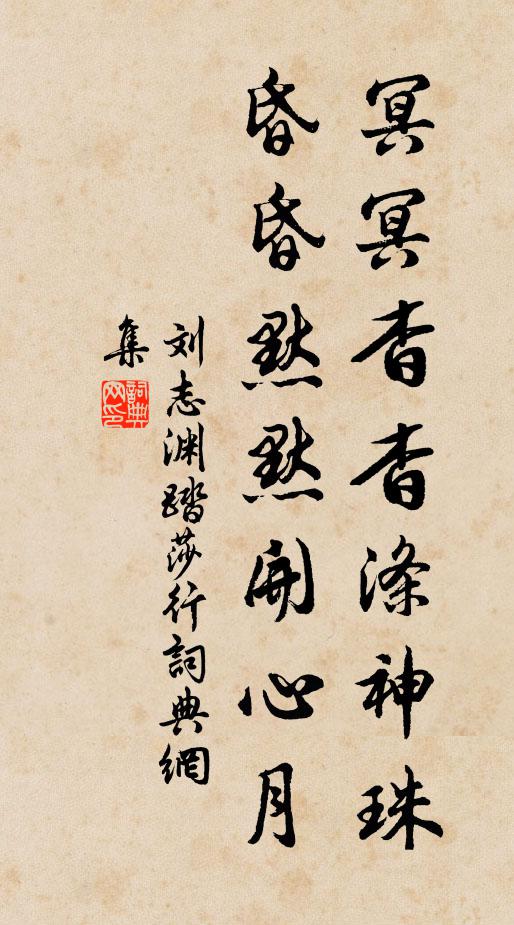 冥冥杳杳涤神珠
昏昏默默開心月
刘志渊踏莎行詞典網
集
詞典
网印